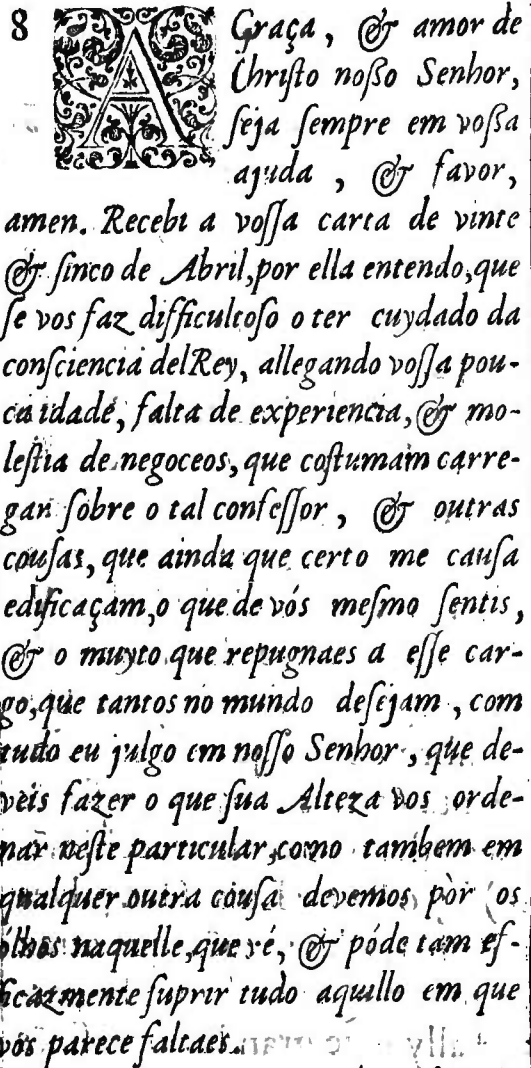 8 A Graça, & amor de
Christo noſſo Senhor,
ſeja ſempre em voſſa
ajuda, & favor,
amen. Recebi a voſſa carta de vinte
& ſinco de Abril, por ella entendo, que
ſe vos faz difficultoſo o ter cuydado da
conſciencia delRey, allegando voſſa pou-
ca idade, falta de experiencia, & mo-
leſtia de negoceos, que coſtumam carre-
gar ſobre o tal confeſſor, & outras
couſas, que ainda que certo me cauſa
edificaçam, o que de vós meſmo ſentis,
& o muyto que repugnaes a eſſe car-
go, que tantos no mundo deſejam, com
tudo eu julgo em noſſo Senhor, que de-
veis fazer o que ſua Alteza vos orde-
nar neſte particular, como tambem em
qualquer outra couſa devemos pòr os
olhos naquelle, que vé, & póde tam ef-
ficazmente ſuprir tudo aquillo em que
vos parece faltaes.